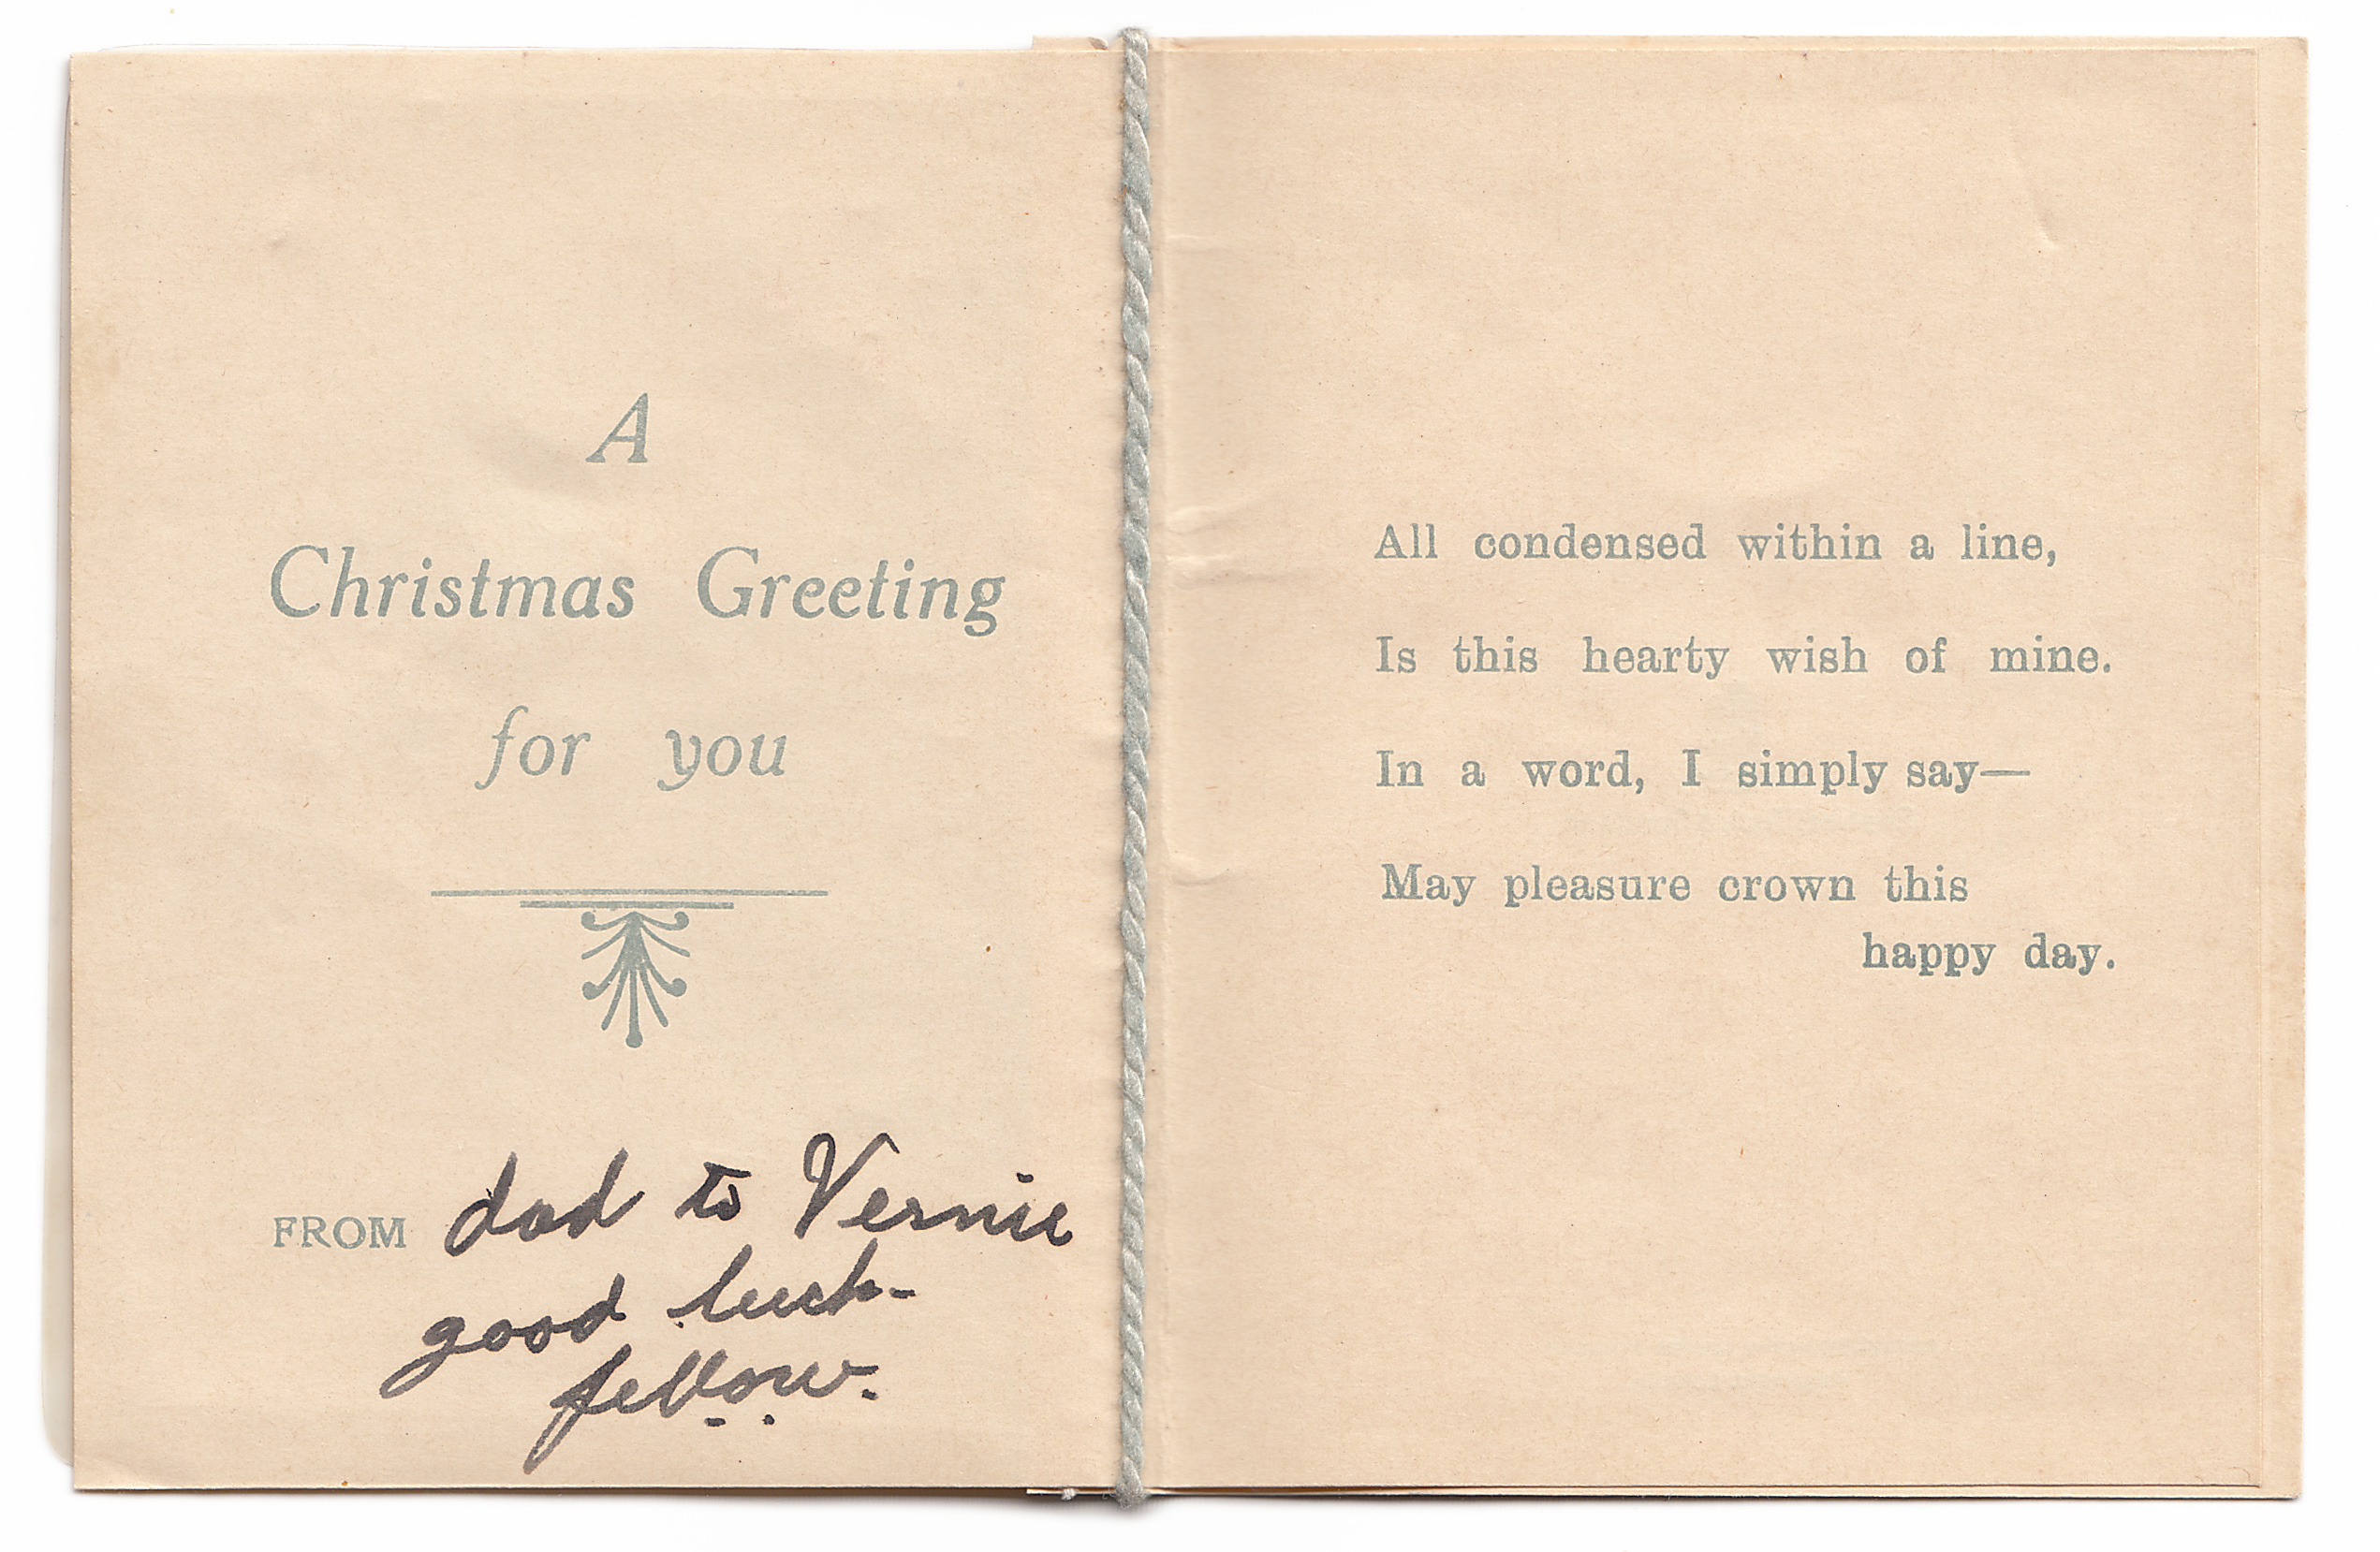 A
Christmas Greeting
for you
FROM dad to Vernie
good luck-
fellow.
All condensed within a line,
Is this hearty wish of mine.
In a word, I simply say—
May pleasure crown this
happy day.